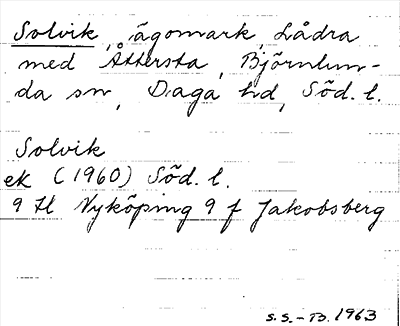 Solvik, ägomark, Lådra
med Åttersta, Björnlun-
da sn, Daga hd, Söd. l.
Solvik
ek (1960) Söd. l.
9 H Nyköping 9 f Jakobsberg
S.S.-B. 1963